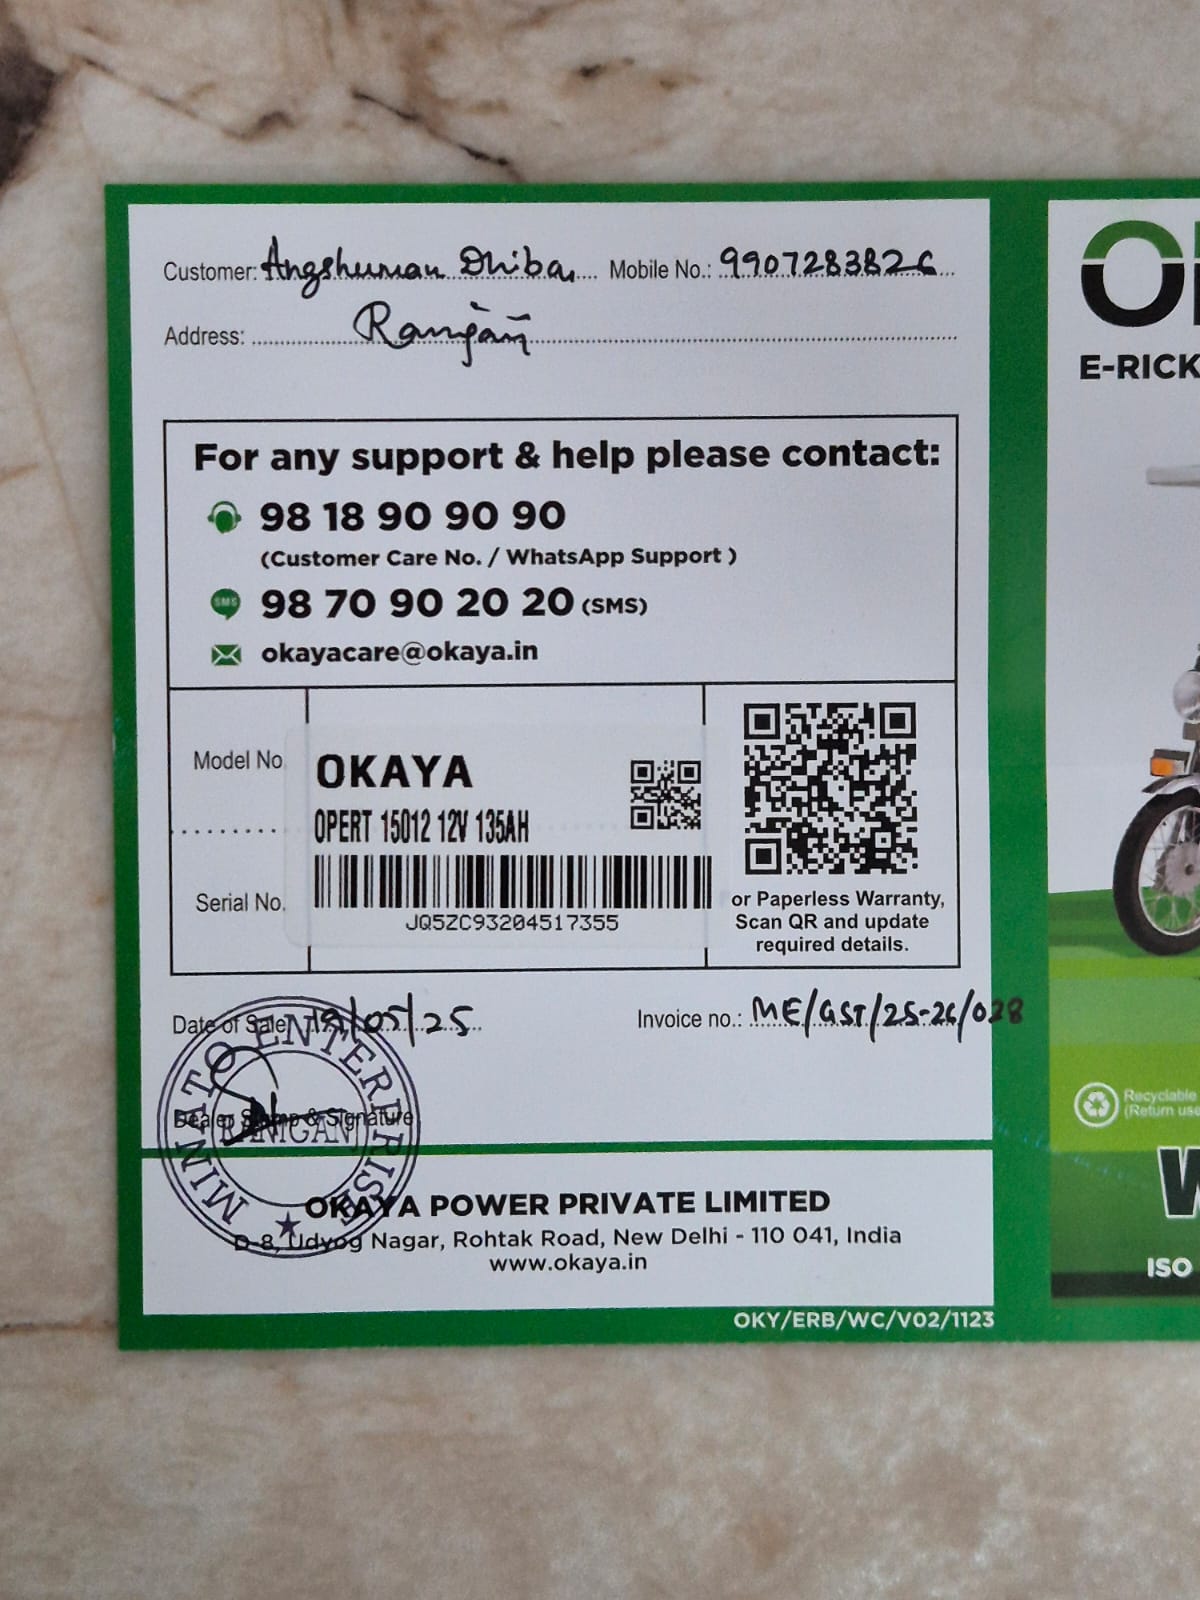 Customer: Angshuman Dhiba Mobile No.: 9907283826
Address: Ranigunj
For any support & help please contact:
98 18 90 90 90
(Customer Care No. / WhatsApp Support )
SMS 98 70 90 20 20 (SMS)
okayacare@okaya.in
Model No. OKAYA
OPERT 15012 12V 135AH
Serial No. JQ5ZC93204517355
or Paperless Warranty,
Scan QR and update
required details.
Date of Sale: 19/05/25 Invoice no.: ME/GST/25-26/028
Dealer Stamp & Signature
MINATO ENTERPRISE
RANIGANJ
OKAYA POWER PRIVATE LIMITED
D-8, Udyog Nagar, Rohtak Road, New Delhi - 110 041, India
www.okaya.in
OKY/ERB/WC/V02/1123
E-RICK
Recyclable
(Return use
W
ISO